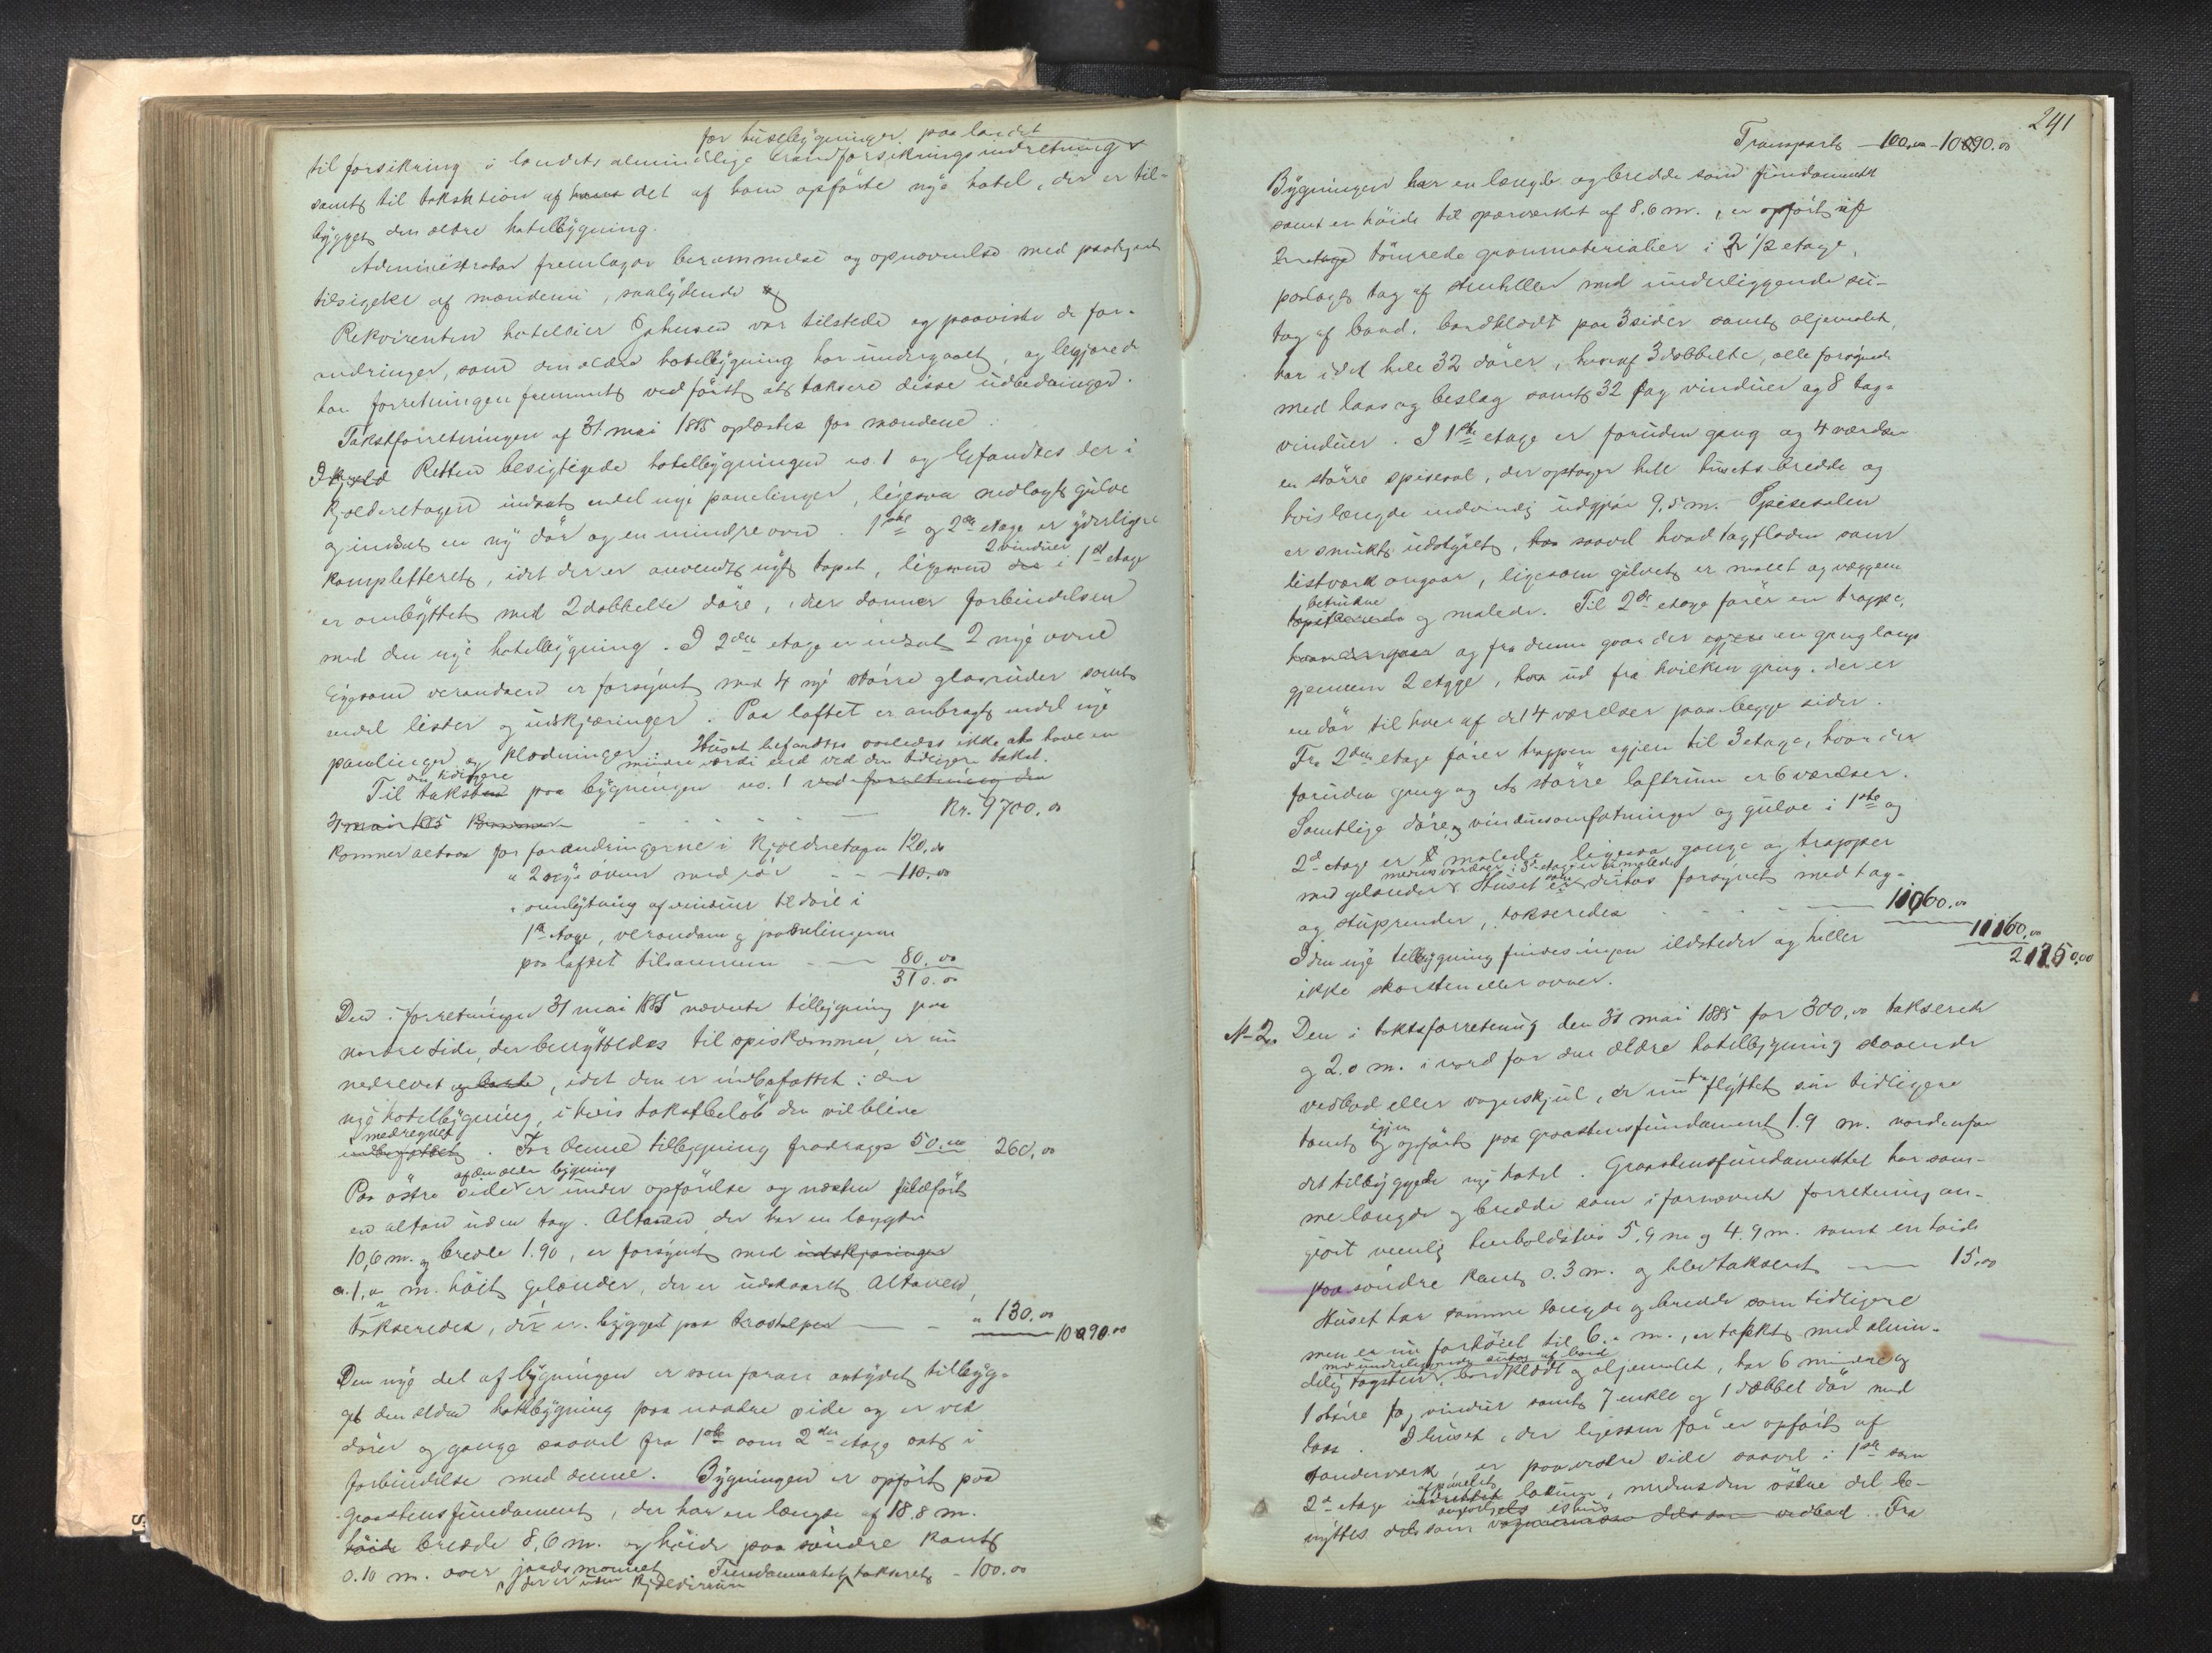 for husebygninger paa landet
til forsikring i landets almindelige brandforsikringsindretning
samt til takstation af hans det af ham opførte nye hotel, der er til-
bygget den ældre hotelbygning.
Administrator fremlagde berammelse og opnævnelse med paategnet
tilsigelse af mændene, saalydende
Rekvirenten hotelleier Johnsen var tilstede og paaviste de for-
andringer, som den ældre hotelbygning har undergaaet, og begjærede
forretningen fremmet ved først at taksere disse udbedringer.
Takstforretningen af 31 mai 1885 oplæstes for mændene.
Retten besigtigede hotelbygningen no. 1 og befandtes der i
kjælderetagen indsat endel nye panelinger, ligesaa nedlagt gulve
og indsat en ny dør og en mindre ovn. 1ste og 2den etage er yderligere
2 vinduer
kompletteret, idet der er anvendt nyt tapet, ligesom der i 1st etage
er ombyttet med 2 dobbelte døre, der danner forbindelsen
med den nye hotelbygning. I 2den etage er indsat 2 nye ovne
ligesom verandaen er forsynet med 4 nye større glasruder samt
endel lister og udskjæringer. Paa loftet er anbragt endel nye
panelinger og klædninger. Huset befandtes saaledes ikke at have en
mindre værdi end ved den tidligere takst.
den tidligere
Til taksten paa bygningen no. 1 ved forretning den
31 mai 1885 kommer — Kr. 9700.00
kommer altsaa for forandringerne i kjælderetagen 120.00
" 2 nye ovner med rør - - 110.00
" ombytning af vinduer til døre i
1st etage, verandaen og panelingerne
paa loftet tilsammen - — 80.00
310.00
Den i forretningen 31 mai 1885 nævnte tilbygning paa
nordre side, der benyttedes til spiskammer, er nu
nedrevet, idet den er indbefattet i den
nye hotelbygning, i hvis takstbeløb den vil blive
medregnet
indbefattet. For denne tilbygning fradrages 50.00 260.00
af den ældre bygning
Paa østre side er under opførelse og næsten fuldført
en altan uden tag. Altanen der har en længde
10,6 m. og bredde 1.90, er forsynet med udskjæringer
m. høit gelænder, der er udskaaret. Altanen,
takseredes, der er bygget paa træstolper — - " 130.00
10090.00
Den nye del af bygningen er som foran antydet tilbyg-
get den ældre hotelbygning paa nordre side og er ved
døre og gange saavel fra 1ste som 2den etage sat i
forbindelse med denne. Bygningen er opført paa
graastensfundament, der har en længde af 18.8 m.
høide bredde 8,6 m. og høide paa søndre kant
0.10 m. over jordsmonnet. Fundamentet takseret - 100.00
der er uden kjælderrum
241
Transport — 100.00 - 10090.00
Bygningen har en længde og bredde som fundamentet
samt en høide til sparværket af 8.6 m., er opført af
2 etage tømrede granmaterialier i 2 1/2 etage,
paalagt tag af stenheller med underliggende su-
tag af bord, bordklædt paa 3 sider samt oljemalet,
har i det hele 32 dører, hvoraf 3 dobbelte, alle forsynede
med laas og beslag samt 32 fag vinduer og 8 tag-
vinduer. I 1ste etage er foruden gang og 4 værelser
en større spisesal, der optager hele husets bredde og
hvis længde indvendig udgjør 9,5 m. Spisesalen
er smukt udstyret, saavel hvad tagfladen som
listværk angaar, ligesom gulvet er malet og væggene
betrukne
tapetserede og malede. Til 2den etage fører en trappe,
hvor der gaar og fra denne gaar der en gang langs
gjennem 2 etage, ud fra hvilken gang der er
en dør til hver af de 14 værelser paa begge sider.
Fra 2den etage fører trappen igjen til 3 etage, hvor der
foruden gang og et større loftrum er 6 værelser.
Samtlige døre, vinduesomfatninger og gulve i 1ste og
2d etage er malede, ligesaa gange og trapper
med gelænder. Huset er desuden forsynet med tag-
og stuprender, takseredes - - - — 11060.00
I den nye tilbygning findes ingen ildsteder og heller 11160.00
ikke skorsten eller ovner. 21250.00
No 2. Den i takstforretning den 31 mai 1885 for 300,00 takserede
og 2.0 m. i nord for den ældre hotelbygning staaende
vedbod eller vognskjul, er nu flyttet fra sin tidligere
igjen
tomt og opført paa graastensfundament 1.9 m. nordenfor
det tilbyggede nye hotel. Graastensfundamentet har sam-
me længde og bredde som i fornævnte forretning an-
ført nemlig henholdsvis 5,9 m og 4.9 m. samt en høide
paa søndre kant 0.3 m. og blev takseret — 15,00
Huset har samme længde og bredde som tidligere
men er nu forhøiet til 6.0 m., er tækket med almin-
med underliggende sutag af bord
delig tagsten, bordklædt og oljemalet, har 6 mindre og
1 større fag vinduer samt 7 enkle og 1 dobbel dør med
laas. I huset, der ligesom før er opført af
standerværk er paa vestre side saavel i 1ste som
afpanelet
2d etage indrettet lokum, medens den østre del be-
ishus
nyttes dels som vognremisse dels som vedbod. Fra